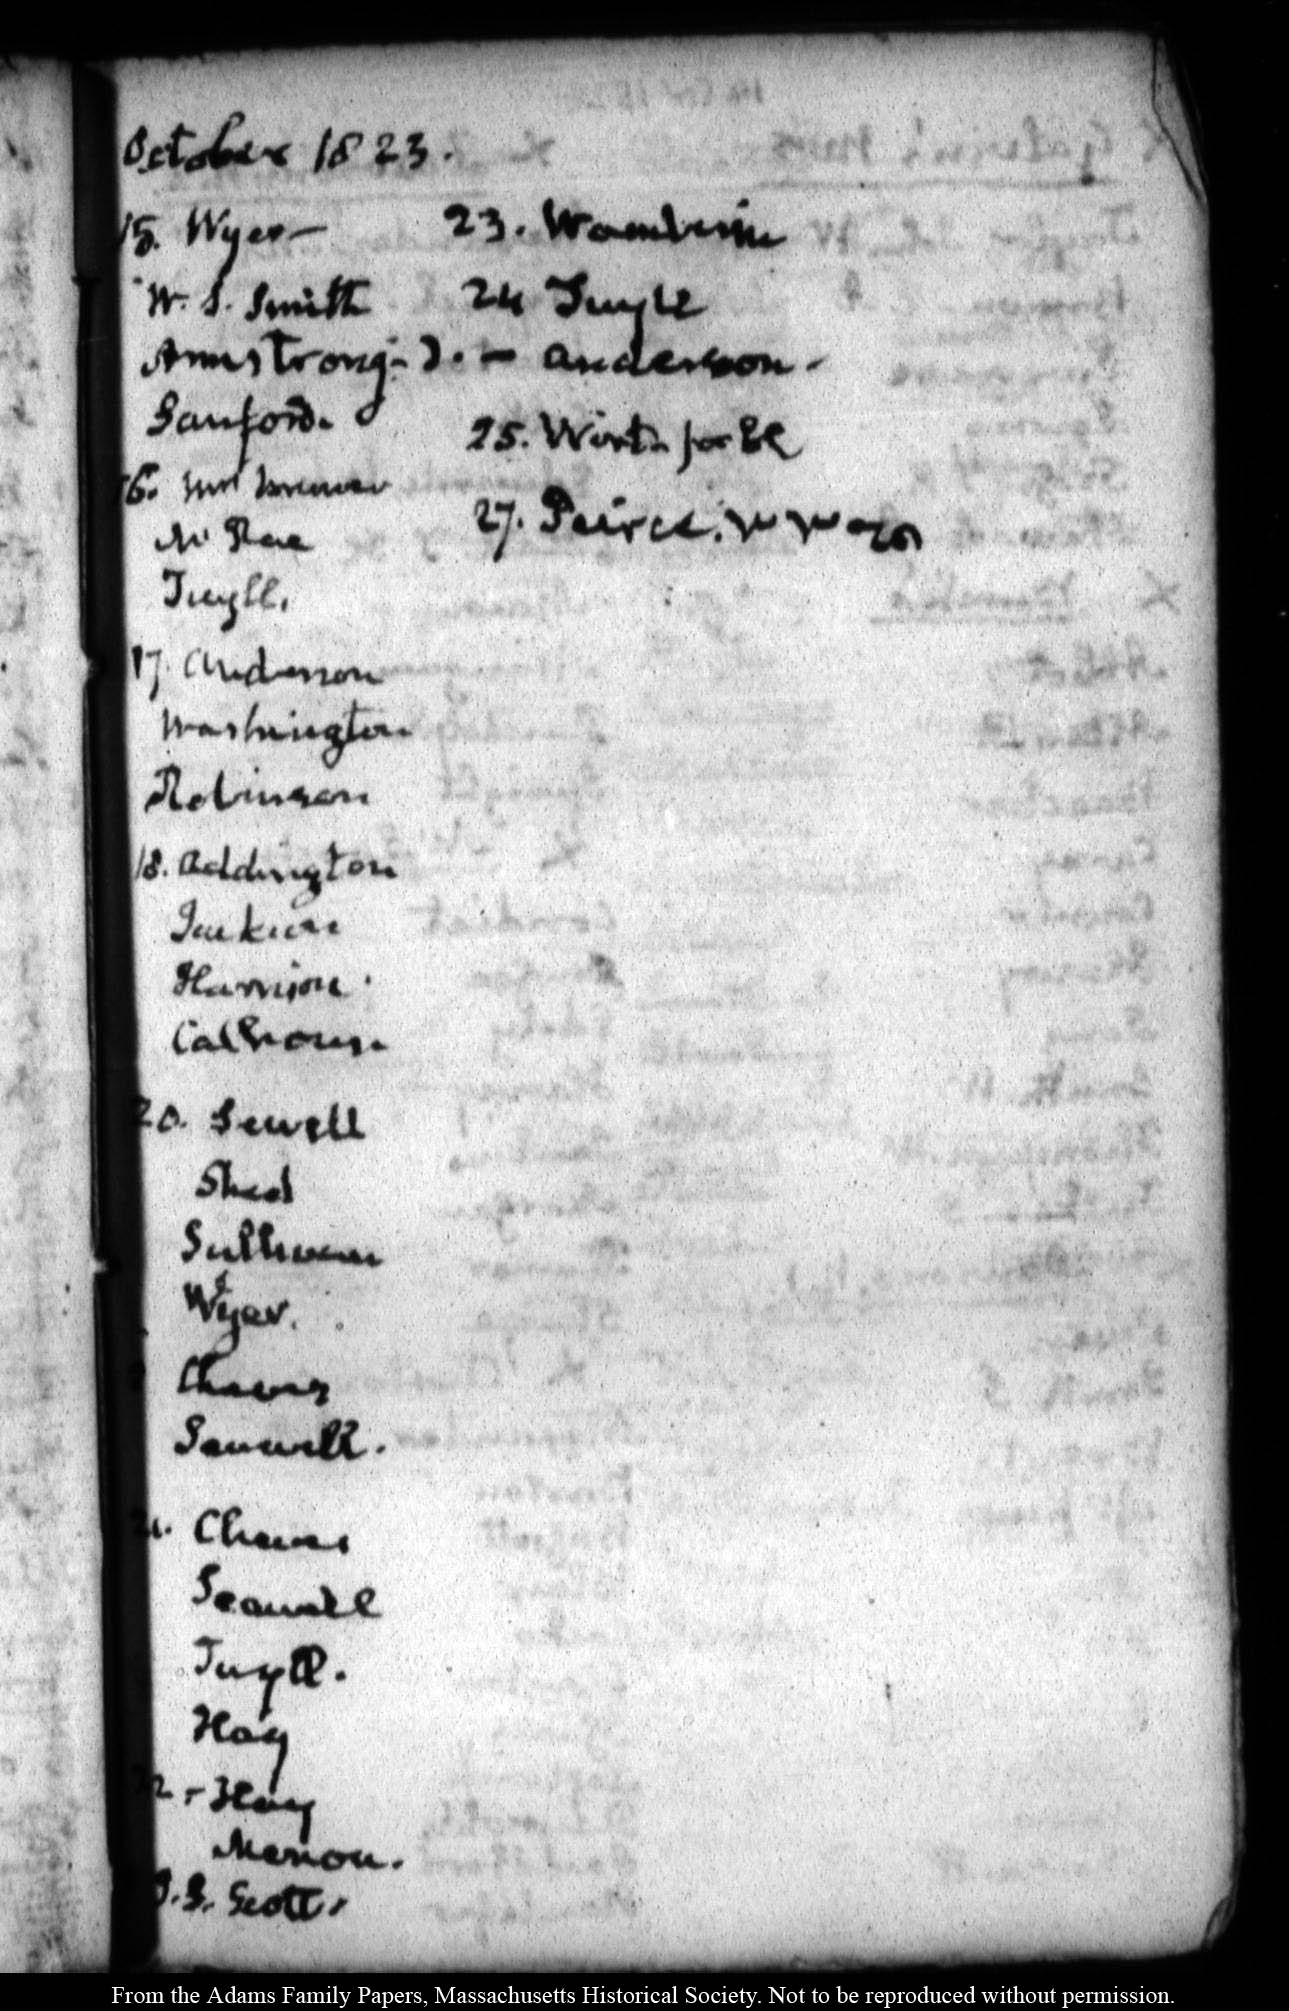 October 1823.
15. Wyer—
W. S. Smith
Armstrong- J. —
Sanford.
16. Mrs Brewer
McRae
Tuyll.
17. Anderson
Washington
Robinson
18. Addington
Harrison
Calhoun
20. Sewell
Shed
Sullivan
Wyer.
Chaves
21. Chaves
Seawell
Tuyll.
Hay
22. - Hay
Menou.
Scott.
23.
24 Tuyll
Anderson.
25. Wirt for
27. Peirce.
From the Adams Family Papers, Massachusetts Historical Society. Not to be reproduced without permission.